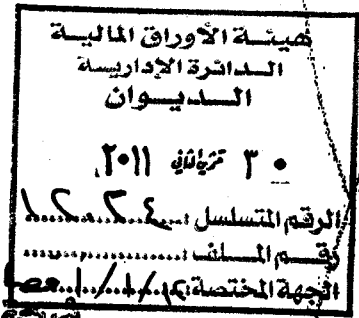 هيئة الأوراق المالية
الدائرة الإدارية
الديوان
٠٣ تشرين الثاني ٢٠١١
الرقم المتسلسل
رقم الملف
الجهة المختصة